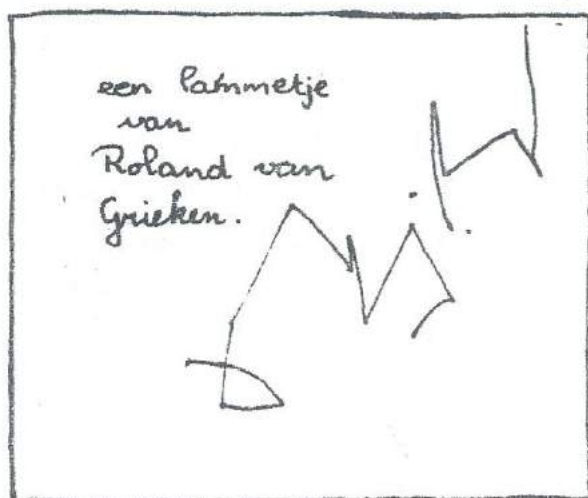 een lammetje
van
Roland van
Grieken.